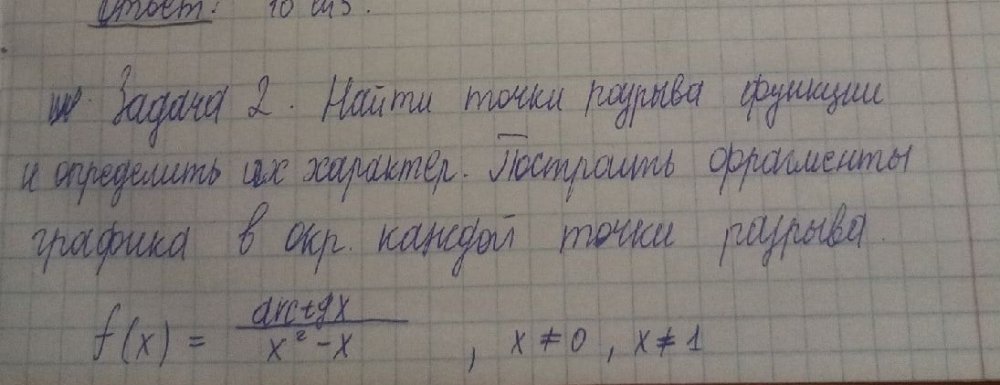 Ответ: 10
Задача 2. Найти точки разрыва функции
и определить их характер. Построить фрагменты
графика в окр. каждой точки разрыва.
f(x) = arctgx / x² - x , x ≠ 0 , x ≠ 1